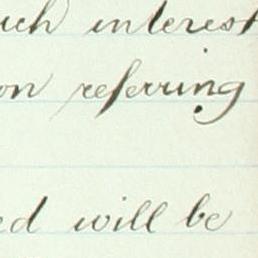 uch interest
on referring
ed will be